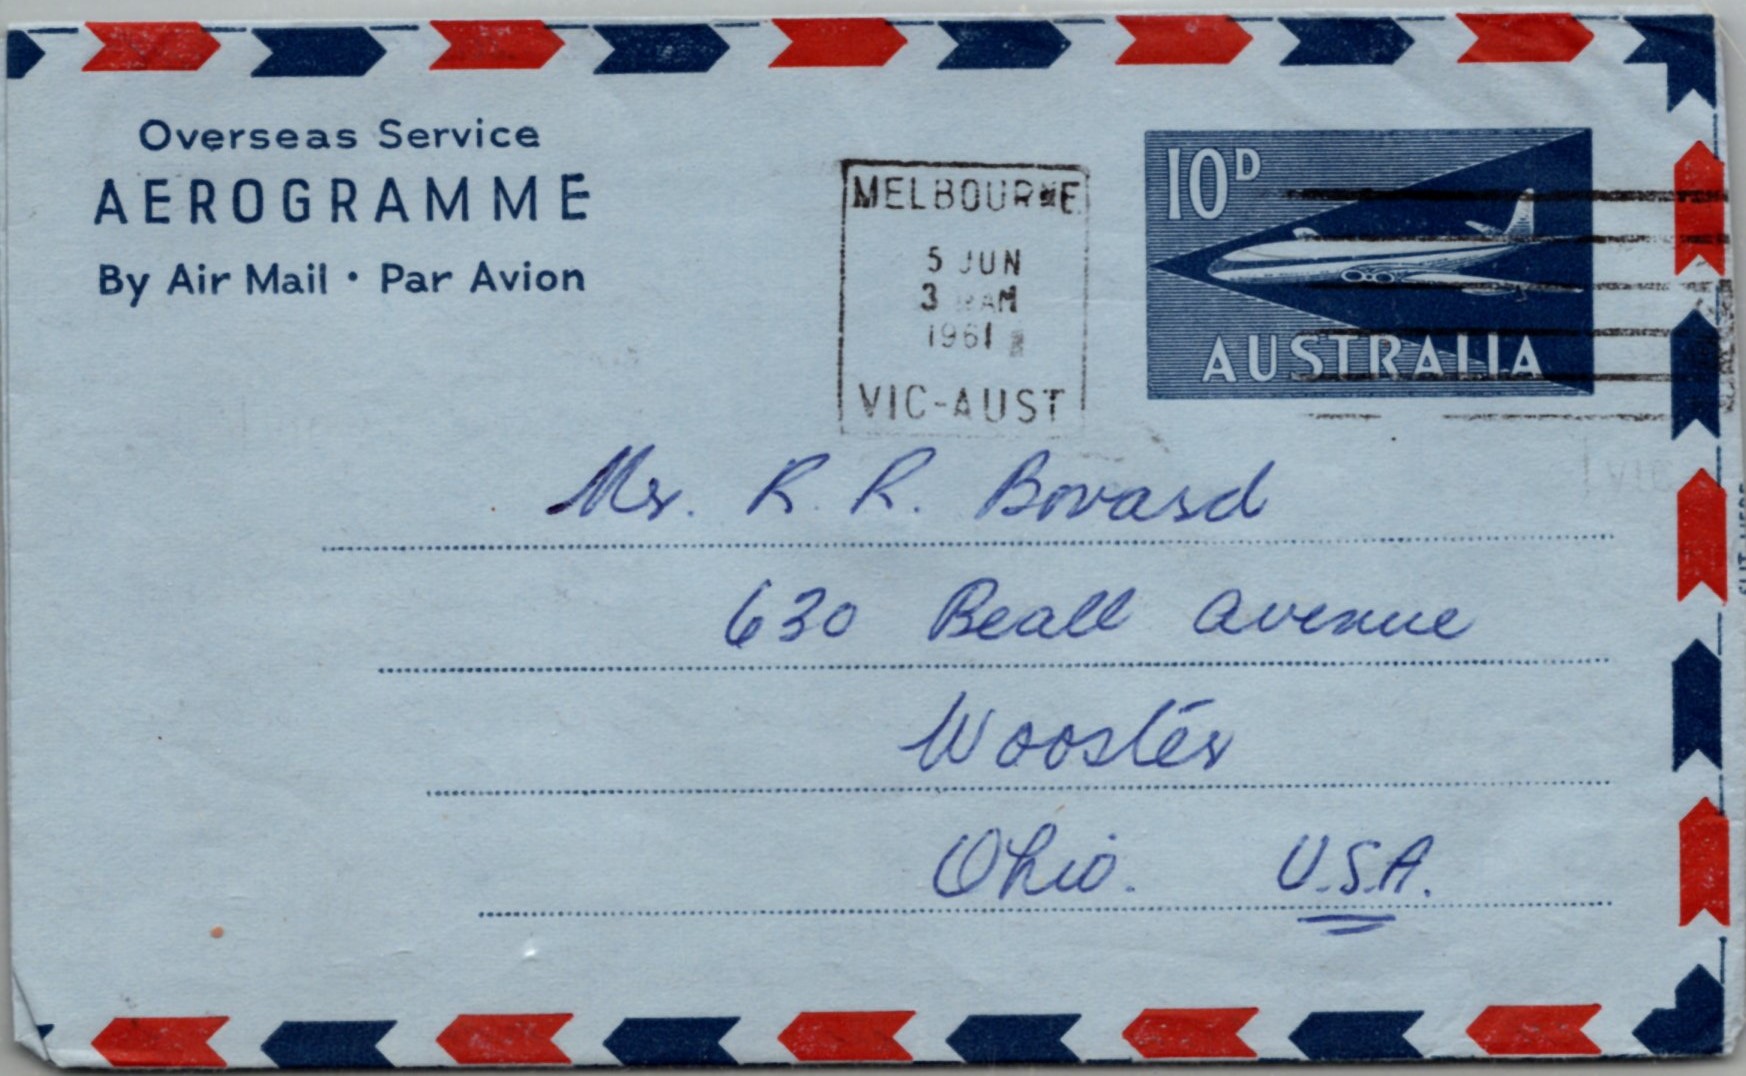 Overseas Service
AEROGRAMME
By Air Mail • Par Avion
MELBOURNE
5 JUN
3 AM
1961
VIC-AUST
10D
AUSTRALIA
Mr. R. R. Bovard
630 Beall Avenue
Wooster
Ohio. U.S.A.
VIC